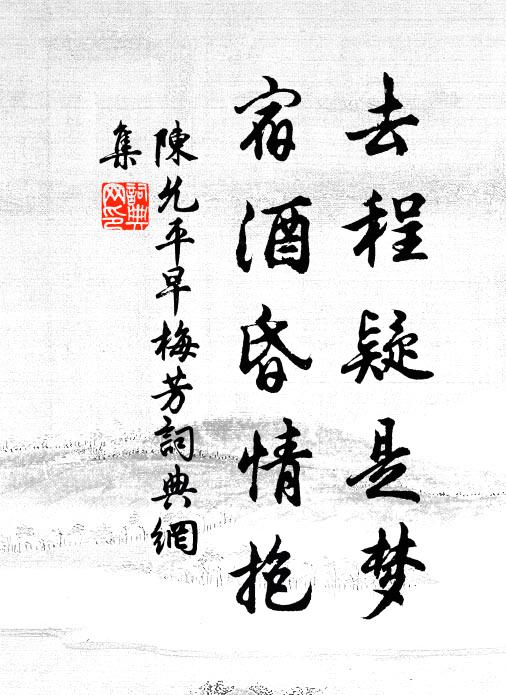 去程疑是梦
宿酒昏情抱
陳允平早梅芳詞典網
集
詞典网印